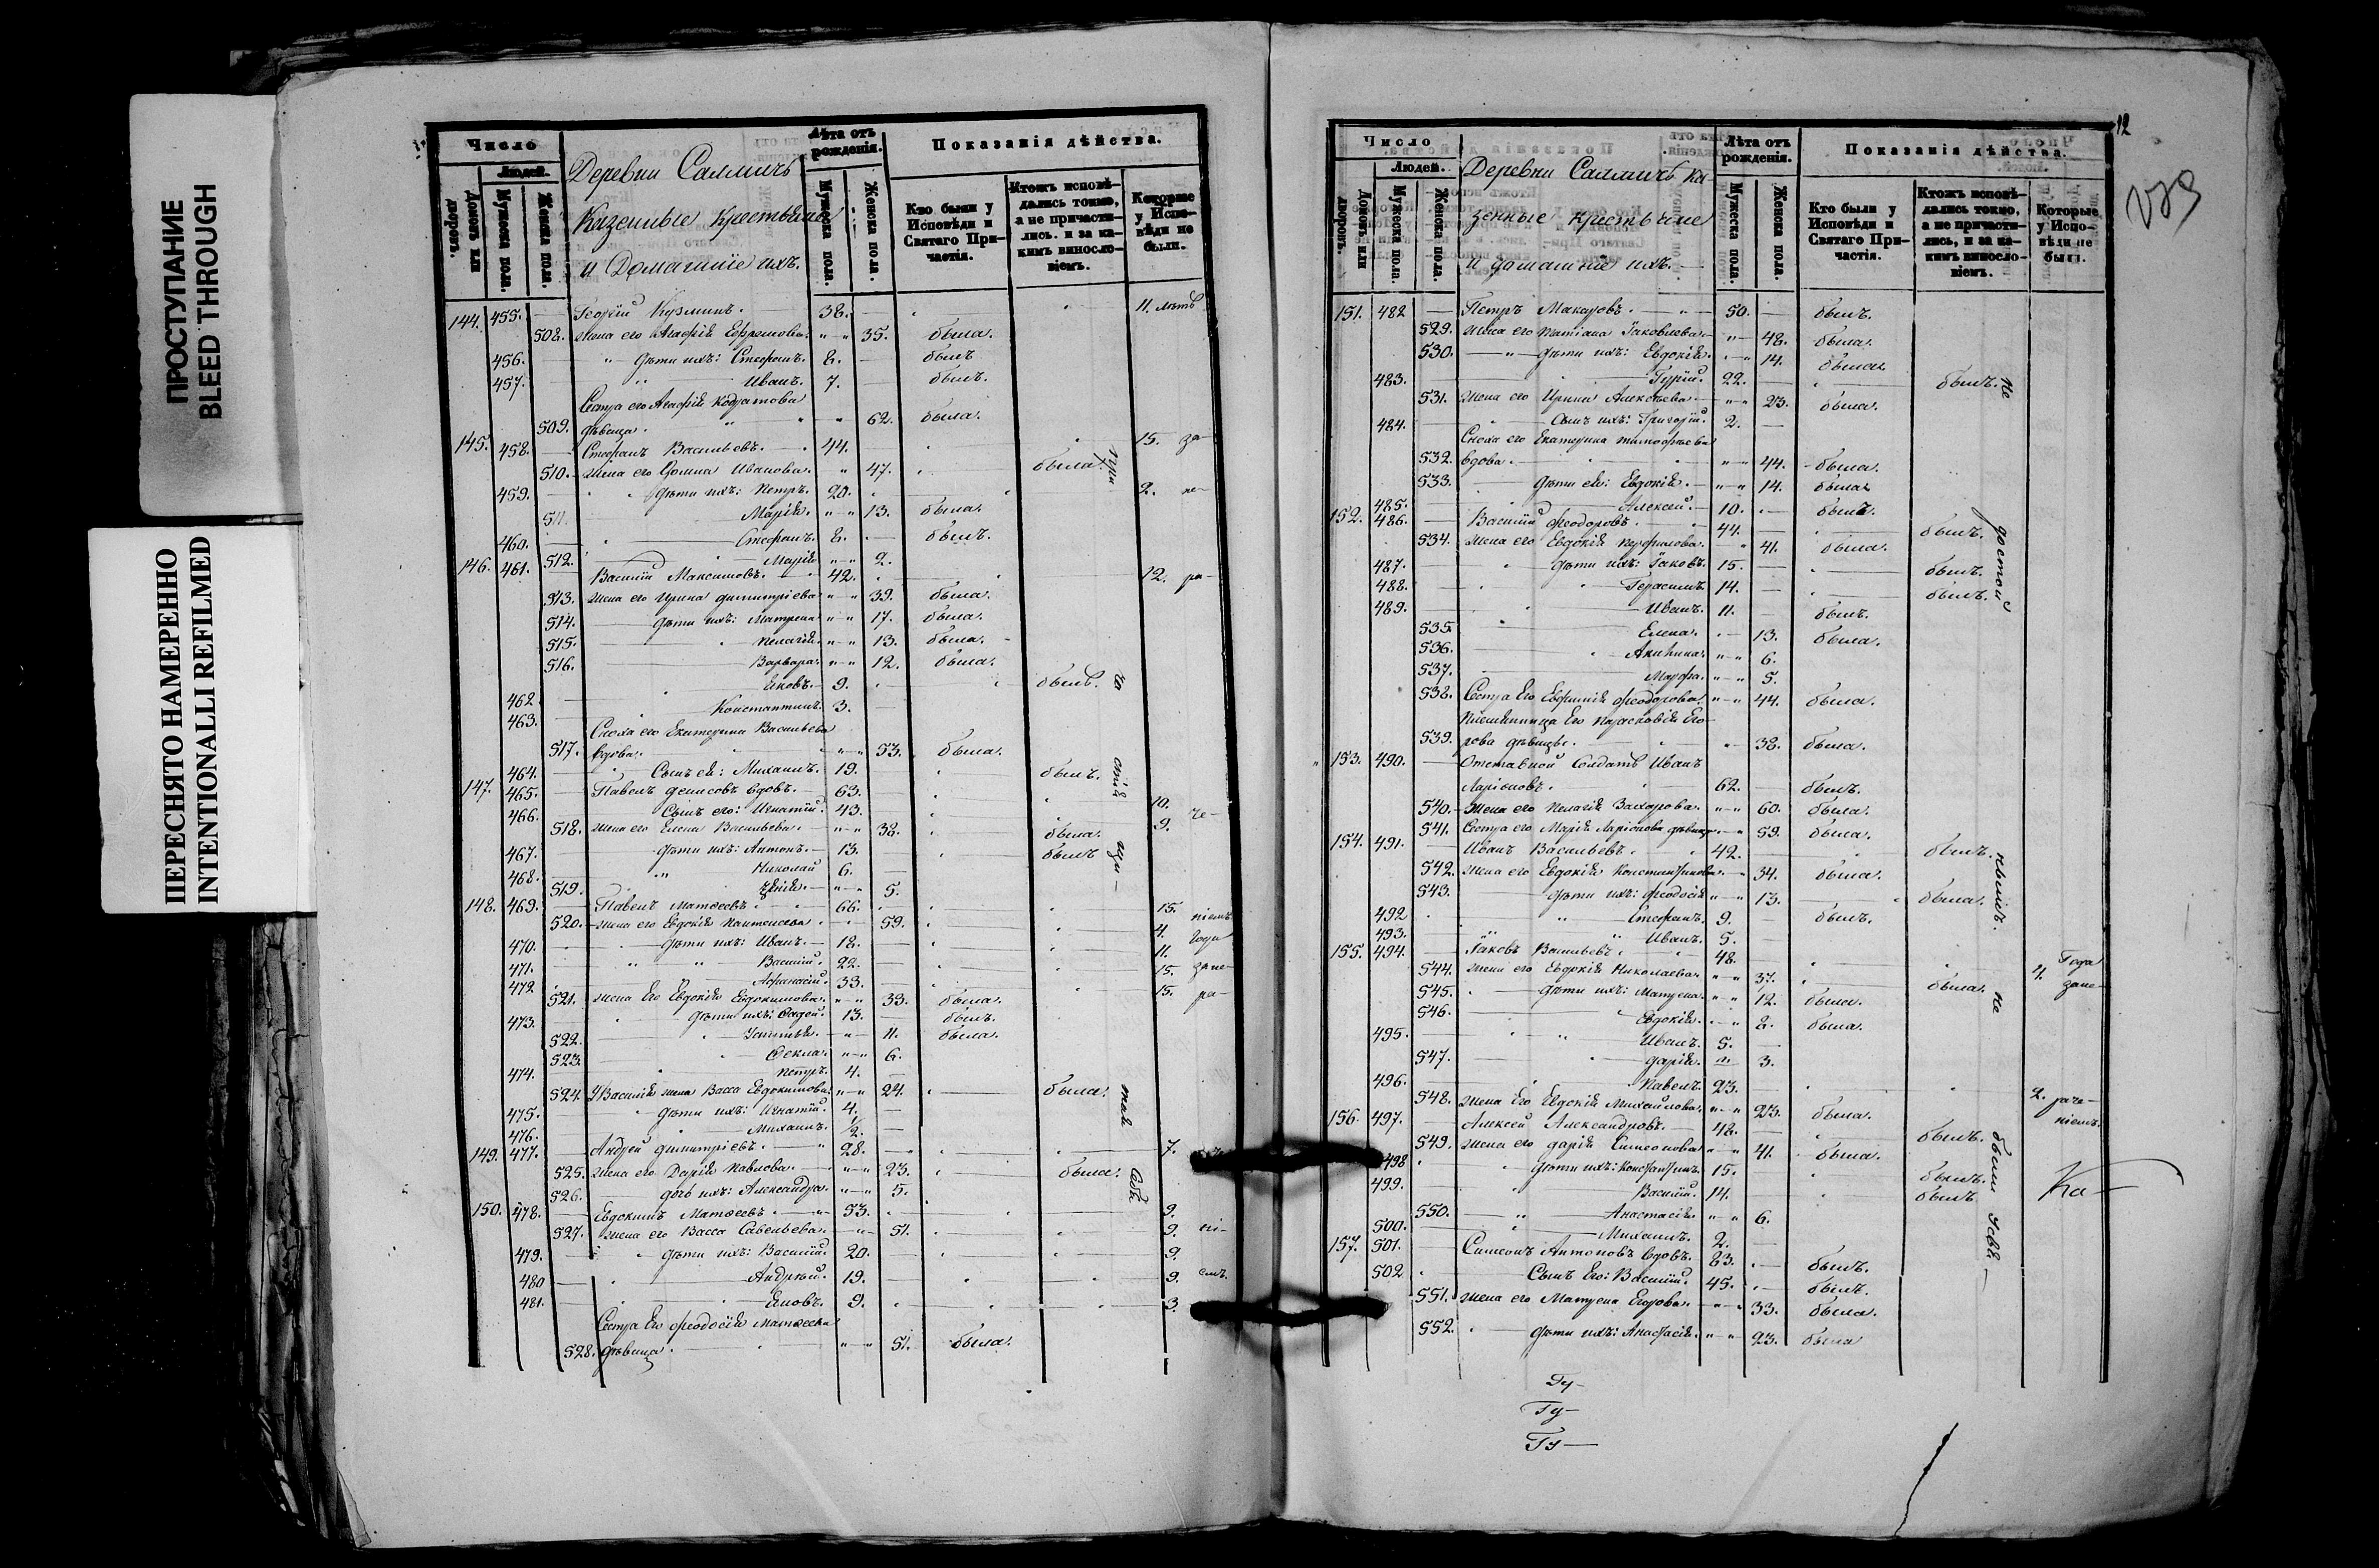 ПРОСТУПАНИЕ
BLEED THROUGH
ПЕРЕСНЯТО НАМЕРЕННО
INTENTIONALLI REFILMED
Число
Людей.
Домовъ или дворовъ.
Мужеска пола.
Женска пола.
Деревни Салмичъ
Казенные Крестьяне
и Домашніе ихъ.
Лѣта отъ рожденія.
Мужеска пола.
Женска пола.
Показанія дѣйства.
Кто были у Исповѣди и Святаго Причастія.
Ктожъ исповѣдались токмо, а не причастились. и за какимъ винословіемъ.
Которые у Исповѣди не были.
144. 455. Георгій Кузминъ. 38. 11. лѣтъ
508. Жена его Агафія Ефремова. 35. была.
456. Дѣти ихъ: Стефанъ. 8. былъ
457. Иванъ. 7. былъ.
Сестра его Агафія Кодратова
509. дѣвица. 62. была.
145. 458. Стефанъ Васильевъ. 44. 15. за-
510. Жена его Домна Иванова. 47. была. при
459. Дѣти ихъ: Петръ. 20. 2. не-
511. Марія. 13. была.
460. Стефанъ. 8. былъ.
512. Марія 2.
146. 461. Василій Максимовъ. 42. 12. ра-
513. Жена его Ирина Димитріева 39. была.
514. Дѣти ихъ: Матрена 17. была.
515. Пелагія. 13. была.
516. Варвара. 12. была.
462. Яковъ. 9. былъ. ча
463. Константинъ. 3.
Сноха его Екатерина Васильева
517. вдова. 53. была.
464. Сынъ ея: Михаилъ. 19. былъ. стія
147. 465. Павелъ Денисовъ вдовъ. 63. 10.
466. Сынъ его: Игнатій. 43. 9. че-
518. Жена его Елена Васильева. 38. была.
467. Дѣти ихъ: Антонъ. 13. былъ
468. Николай 6.
519. 5.
148. 469. Павелъ Матвеевъ. 66. 15. ніемъ
520. Жена его Евдокія 59. 4. Года
470. Дѣти ихъ: Иванъ. 18. 11.
471. Василій. 22. 15. зане-
472. Афанасій. 33. 15. ра-
521. Жена Его Евдокія Евдокимова. 33. была.
473. Дѣти ихъ: Фадей. 13. былъ.
522. 11. была.
523. Фекла. 6.
474. Петръ. 4.
524. У Василія жена Васса Евдокимова. 24. была.
475. Дѣти ихъ: Игнатій. 4.
476. Михаилъ. 1/2.
149. 477. Андрей Димитріевъ. 28. 7.
525. Жена его Дарія Павлова. 23. была.
526. дочь ихъ: Александра. 5.
150. 478. Евдокимъ Матвеевъ 53. 9.
527. Жена его Васса Савельева. 51. 9. ні-
479. Дѣти ихъ: Василій. 20. 9.
480 Андрей. 19. 9. емъ.
481. Яковъ. 9. 3.
Сестра Его Феодосія Матвеева
528. дѣвица. 51. была.
12
Число
Людей.
Домовъ или дворовъ.
Мужеска пола.
Женска пола.
Деревни Салмичъ Ка-
зенные Крестьяне
и домашніе ихъ.
Лѣта отъ рожденія.
Мужеска пола.
Женска пола.
Показанія дѣйства.
Кто были у Исповѣди и Святаго Причастія.
Ктожъ исповѣдались токмо, а не причастились, и за какимъ винословіемъ.
Которые у Исповѣди не были.
151. 482 Петръ Макаровъ. 50. былъ.
529. Жена его Татіана Іаковлева. 48. была.
530. Дѣти ихъ: Евдокія. 14. была.
483. Гурій. 22. былъ. не
531. Жена его Ирина Алексѣева 23. была.
484. Сынъ ихъ: Григорій. 2.
Сноха его Екатерина Тимофѣева
532. вдова. 44. была.
533. Дѣти ея: Евдокія. 14. была.
485. Алексей. 10. былъ.
152. 486. Василій Феодоровъ. 44. былъ. достой
534. Жена его Евдокія Перфилова. 41. была.
487. Дѣти ихъ: Іаковъ. 15. былъ.
488. Герасимъ. 14. былъ.
489. Иванъ. 11. былъ.
535. Елена. 13. была.
536. Акилина. 6.
537. Марфа. 5.
538. Сестра Его Евфимія Феодорова. 44. была.
Племянница Его Парасковія Его-
539. рова дѣвица. 38. была.
153. 490. Отставной Солдатъ Иванъ
Ларіоновъ. 62. былъ.
540. Жена его Пелагія Захарова. 60. была.
541. Сестра его Марія Ларіонова дѣвица. 59. была.
154. 491. Иванъ Васильевъ. 42. былъ. нымъ.
542. Жена его Евдокія Константинова. 34. была.
543. Дѣти ихъ: Феодосія 13. была.
492 Стефанъ. 9. былъ.
493. Иванъ. 5.
155. 494. Іаковъ Васильевъ. 48. 4. Года
544. Жена его Евдокія Николаева. 37. была. не зане-
545. Дѣти ихъ: Матрена. 12. была.
546. Евдокія. 8. была.
495. Иванъ. 5.
547. Дарія. 3.
496. Павелъ. 23. 2. раче-
548. Жена Его Евдокія Михайлова. 23. была. ніемъ.
156. 497. Алексей Александровъ. 48. былъ. были
549. Жена его Дарія Симеонова 41. была.
498 Дѣти ихъ: Константинъ. 15. былъ.
499. Василій. 14. былъ
550. Анастасія. 6.
500. Михаилъ. 2.
157. 501. Симеонъ Антоновъ вдовъ. 83. былъ.
502 Сынъ Его: Василій. 45. былъ.
551. Жена его Матрена Егорова. 33. была.
552. Дѣти ихъ: Анастасія. 23. была
Ка-
Гу-
Гу-
Гу-